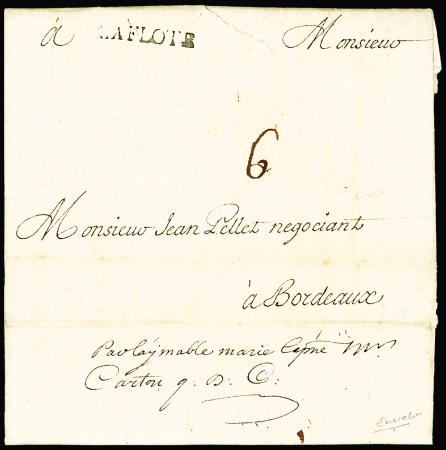 à LAFLOTE Monsieur
6
Monsieur Jean Pellet negociant
à Bordeaux
Par laÿmable marie Cap.ne
q. D. C.